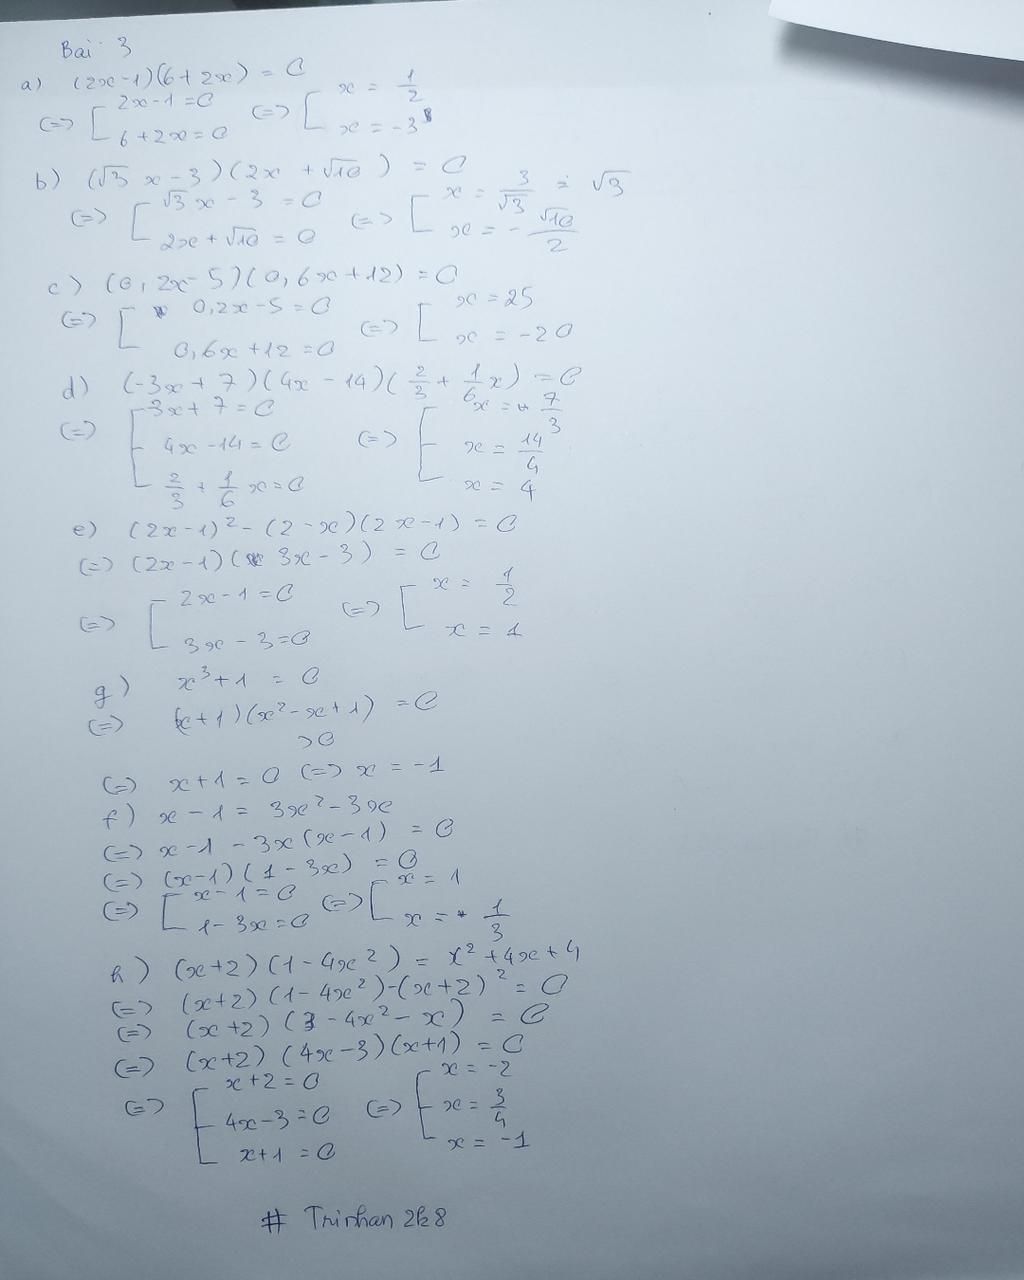 Bai 3
a) (2x-1)(6+2x) = 0
(=) [ 2x-1=0 (=) [ x = 1/2
6+2x=0 x = -3
b) (√3 x - 3)(2x + √10) = 0
(=) [ √3 x - 3 = 0 (=) [ x = 3/√3 = √3
2x + √10 = 0 x = - √10/2
c) (0,2x-5)(0,6x+12) = 0
(=) [ 0,2x-5=0 (=) [ x = 25
0,6x+12=0 x = -20
d) (-3x+7)(4x-14)(2/3 + 1/6 x) = 0
(=) [ -3x+7=0 (=) [ x = 7/3
4x-14=0 x = 14/4
2/3 + 1/6 x=0 x = 4
e) (2x-1)² - (2-x)(2x-1) = 0
(=) (2x-1)(3x-3) = 0
(=) [ 2x-1=0 (=) [ x = 1/2
3x-3=0 x = 1
g) x³+1 = 0
(=) (x+1)(x²-x+1) = 0
>0
(=) x+1=0 (=) x = -1
f) x-1 = 3x²-3x
(=) x-1 - 3x(x-1) = 0
(=) (x-1)(1-3x) = 0
(=) [ x-1=0 (=) [ x = 1
1-3x=0 x = 1/3
h) (x+2)(1-4x²) = x²+4x+4
(=) (x+2)(1-4x²)-(x+2)² = 0
(=) (x+2)(3-4x²-x) = 0
(=) (x+2)(4x-3)(x+1) = 0
(=) [ x+2=0 (=) [ x = -2
4x-3=0 x = 3/4
x+1=0 x = -1
# Trinhan 2k8